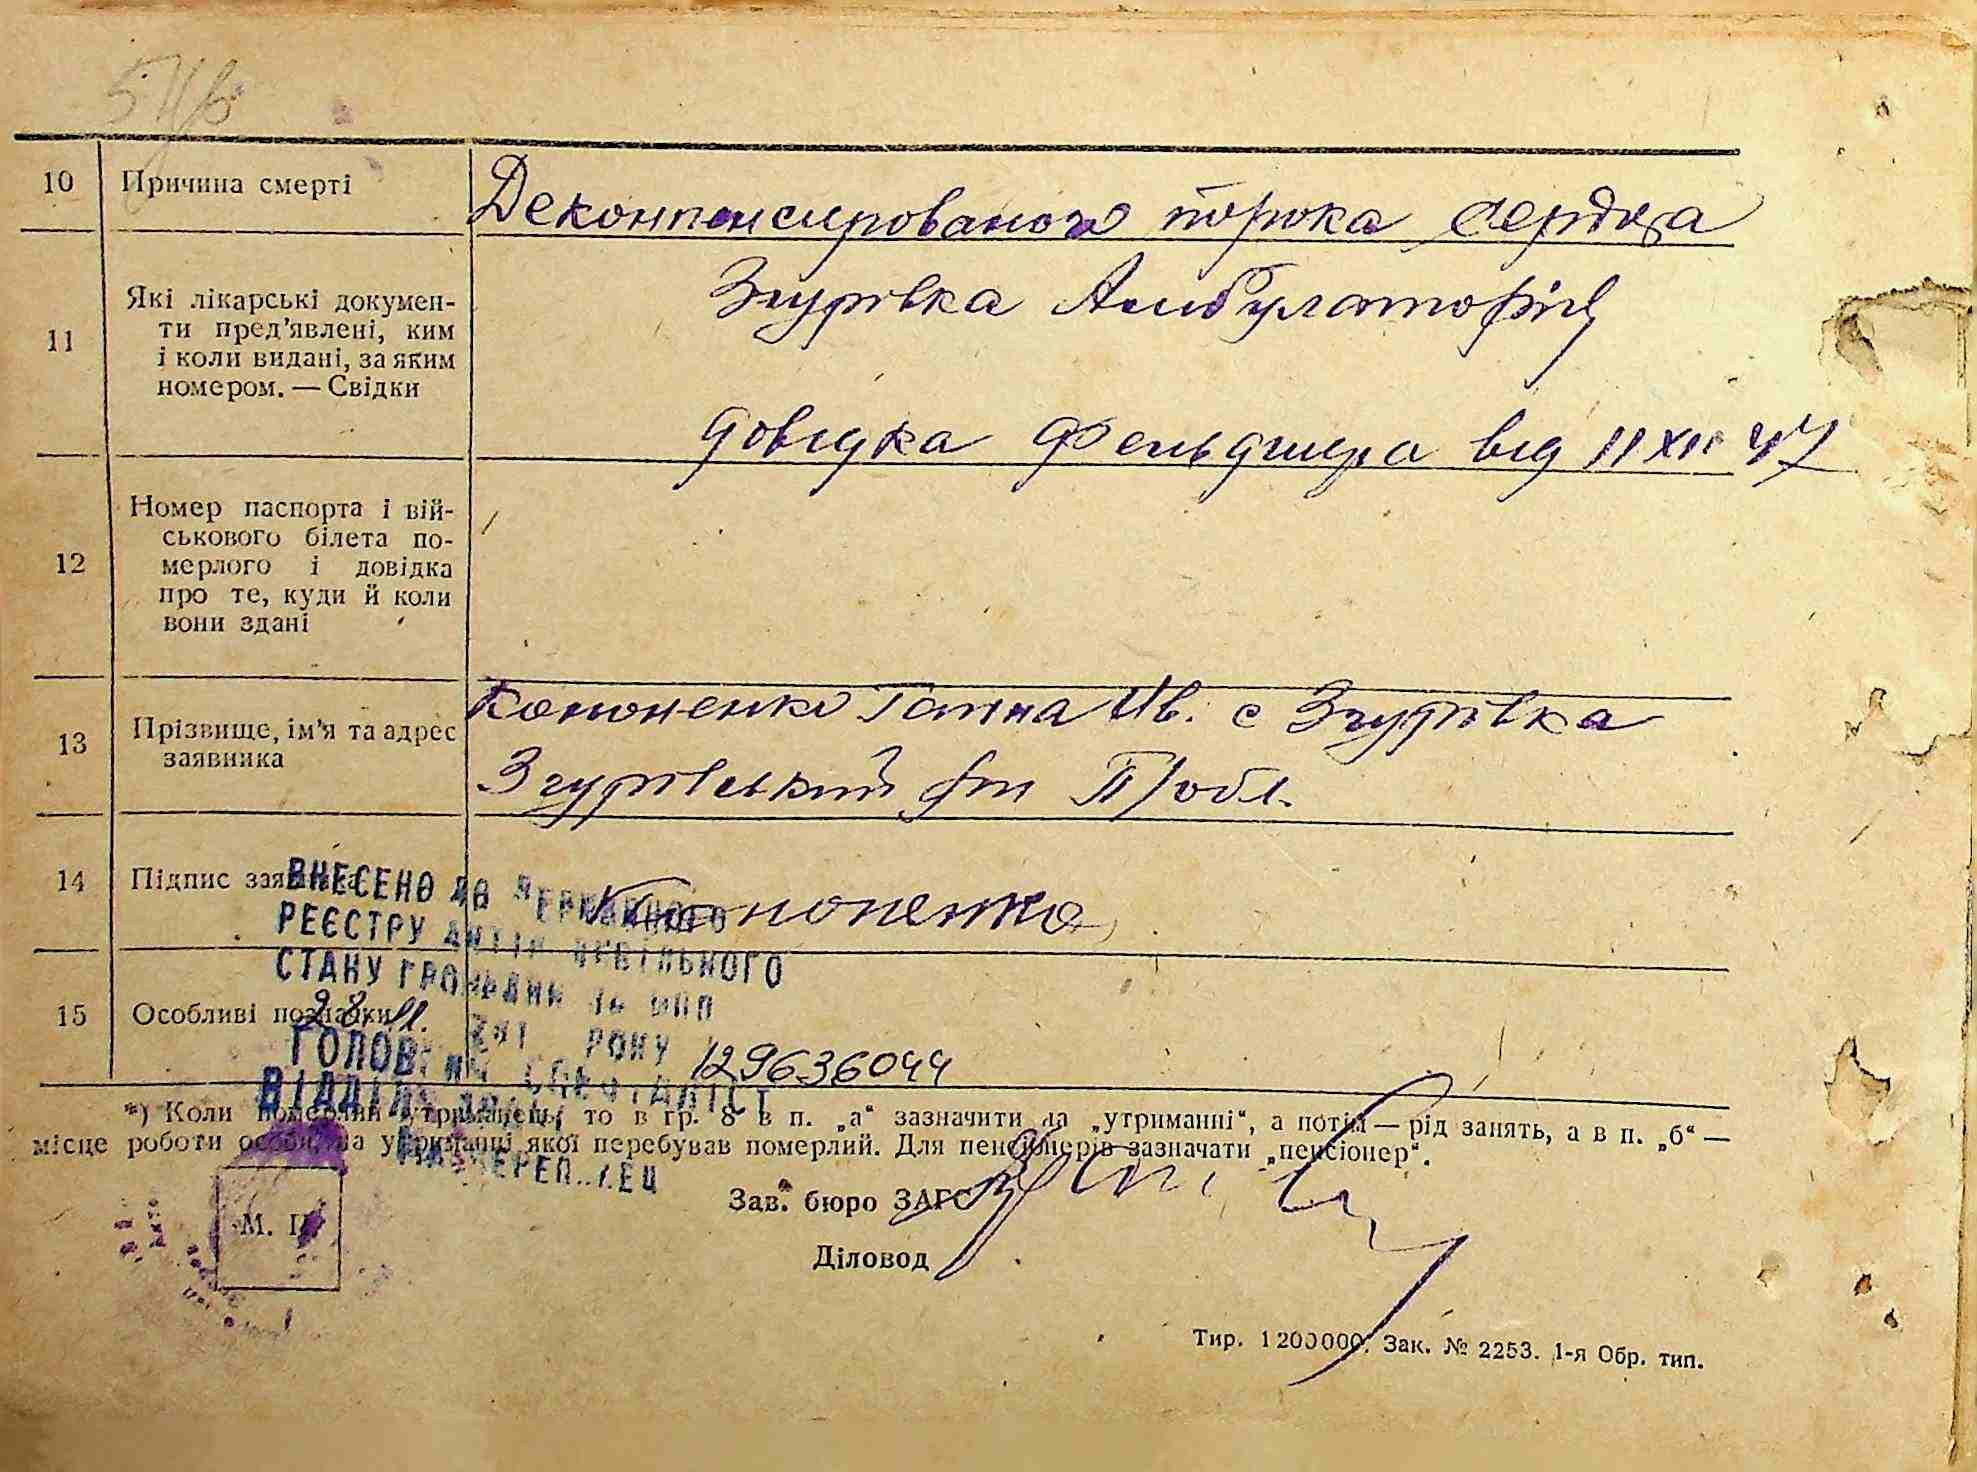 10 Причина смерті Деконпенсированого порока сердца
11 Які лікарські докумен-
ти пред'явлені, ким
і коли видані, за яким
номером. — Свідки
Згурівка Амбулаторія
довідка Фельдшера від 11 XII 47
12 Номер паспорта і вій-
ськового білета по-
мерлого і довідка
про те, куди й коли
вони здані
13 Прізвище, ім'я та адрес
заявника
Кононенко Ганна Ив. с Згурівка
Згурівський П/обл.
14 Підпис заявника Кононенко
ВНЕСЕНО ДО ДЕРЖАВНОГО
РЕЄСТРУ АКТІВ ЦИВІЛЬНОГО
СТАНУ ГРОМАДЯН ЗА
15 Особливі познаки
28. 11. РОКУ
129636044
ГОЛОВНИЙ СПЕЦІАЛІСТ
ВІДДІЛУ
*) Коли померлий утриманець, то в гр. 8 в п. „а“ зазначити на „утриманні“, а потім — рід занять, а в п. „б“ —
місце роботи особи, на утриманні якої перебував померлий. Для пенсіонерів зазначати „пенсіонер“.
Зав. бюро ЗАГС
М. П.
Діловод
Тир. 1200000. Зак. № 2253. 1-я Обр. тип.